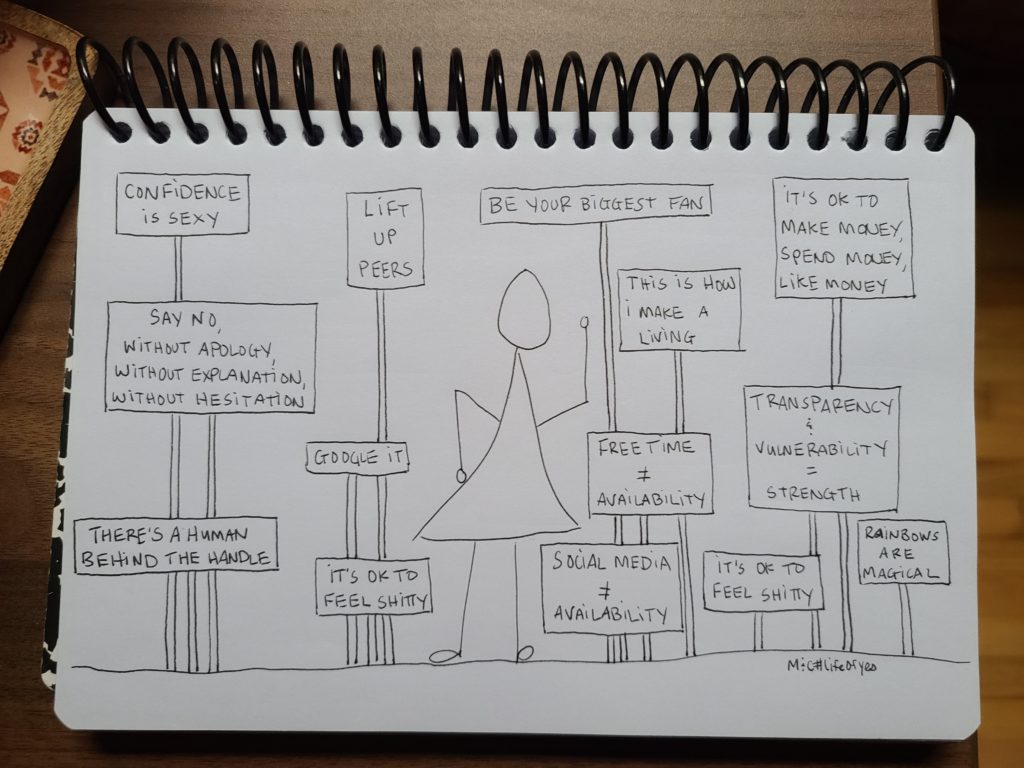 CONFIDENCE
IS SEXY
SAY NO,
WITHOUT APOLOGY,
WITHOUT EXPLANATION,
WITHOUT HESITATION
THERE'S A HUMAN
BEHIND THE HANDLE
LIFT
UP
PEERS
GOOGLE IT
IT'S OK TO
FEEL SHITTY
BE YOUR BIGGEST FAN
THIS IS HOW
I MAKE A
LIVING
FREE TIME
≠
AVAILABILITY
SOCIAL MEDIA
≠
AVAILABILITY
IT'S OK TO
MAKE MONEY,
SPEND MONEY,
LIKE MONEY
TRANSPARENCY
&
VULNERABILITY
=
STRENGTH
IT'S OK TO
FEEL SHITTY
RAINBOWS
ARE
MAGICAL